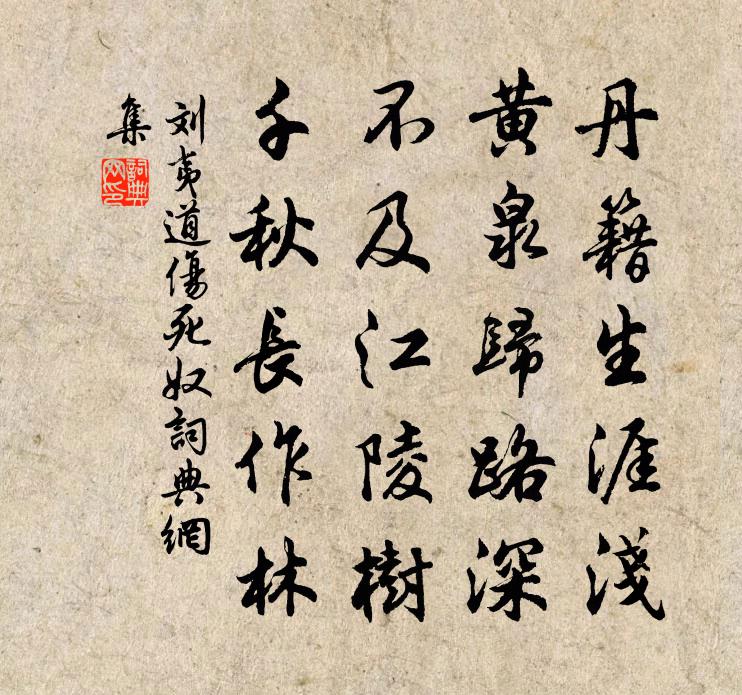 丹籍生涯淺
黃泉歸路深
不及江陵樹
千秋長作林
刘夷道傷死奴詞典網
集
詞典
网印